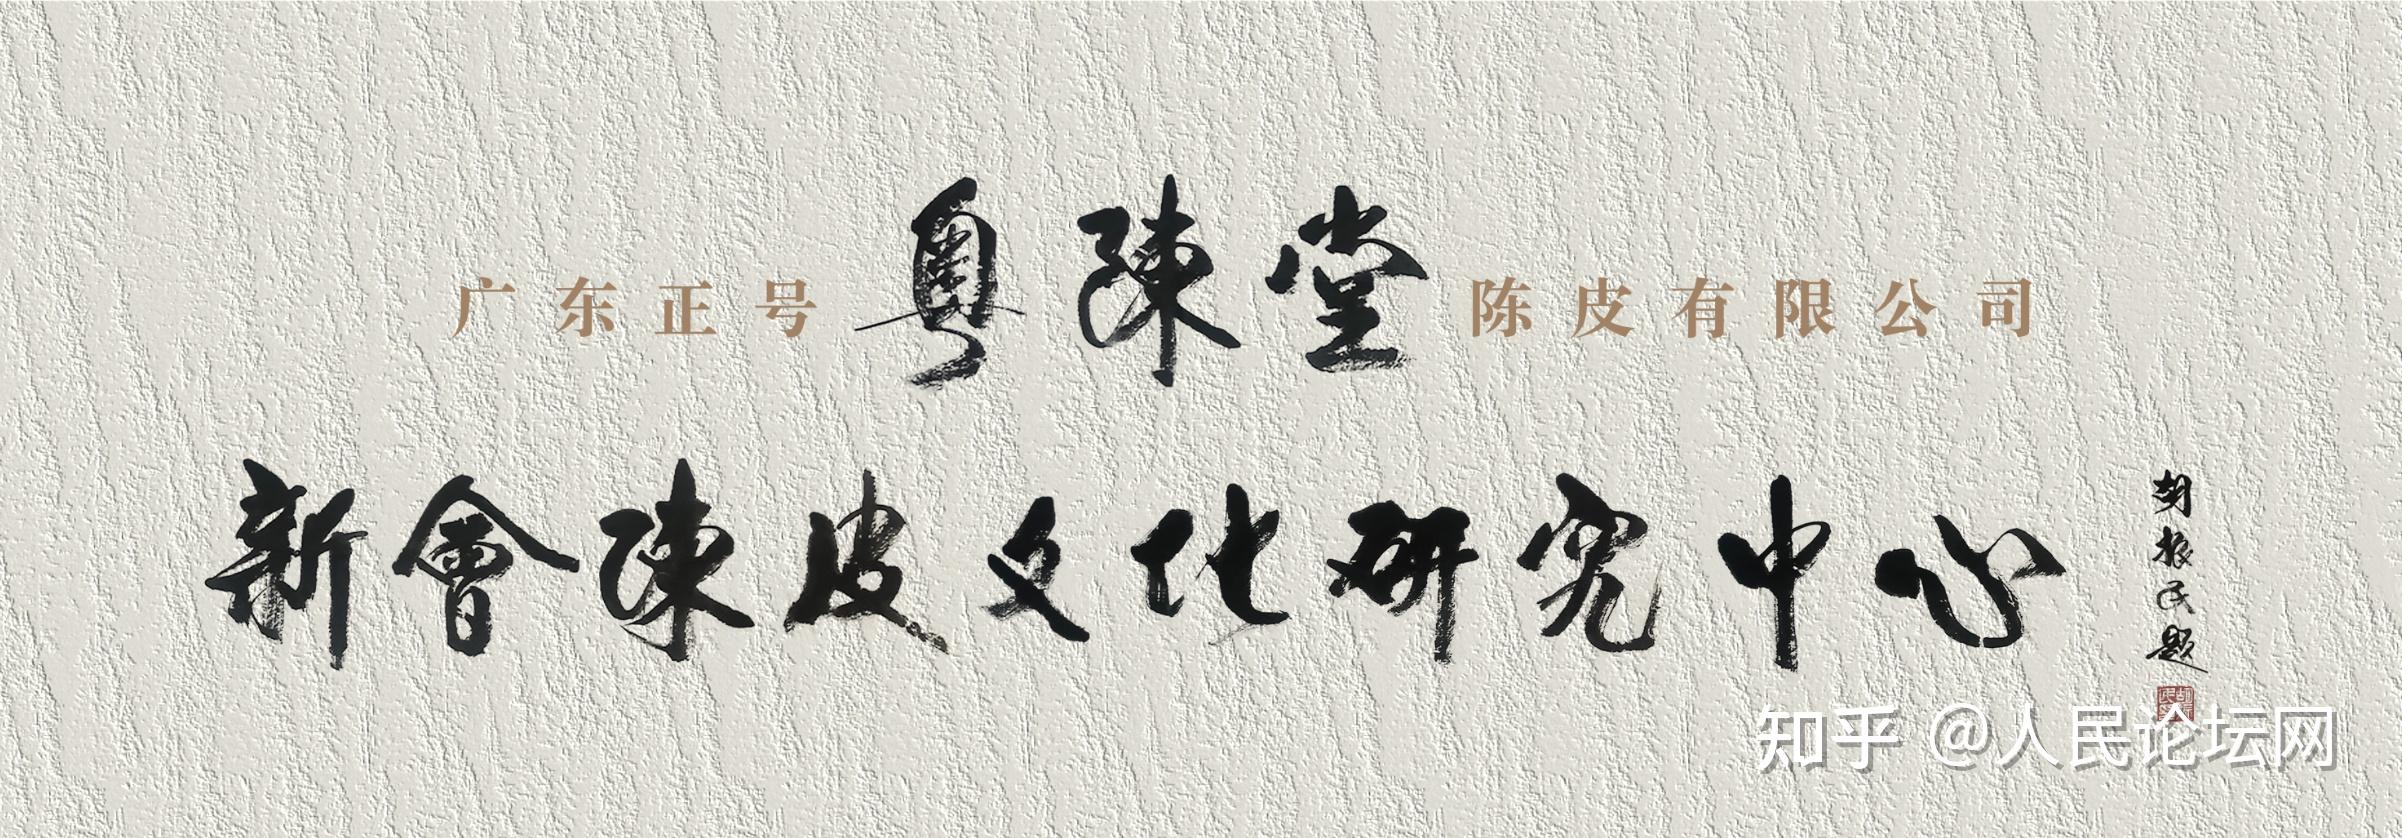 广东正号粤陳堂陈皮有限公司
新會陳皮文化研究中心
胡振民题
知乎 @人民论坛网